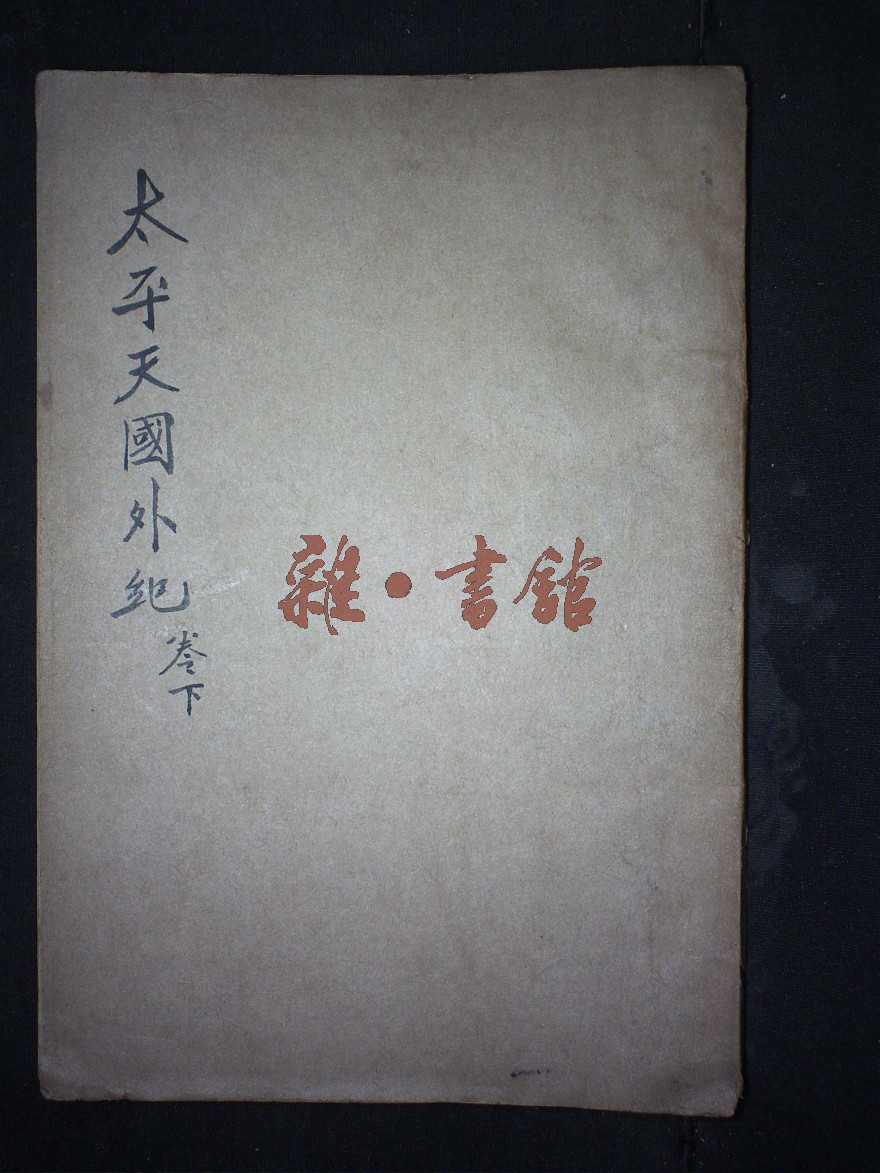 太平天國外紀
卷下
雜·書館